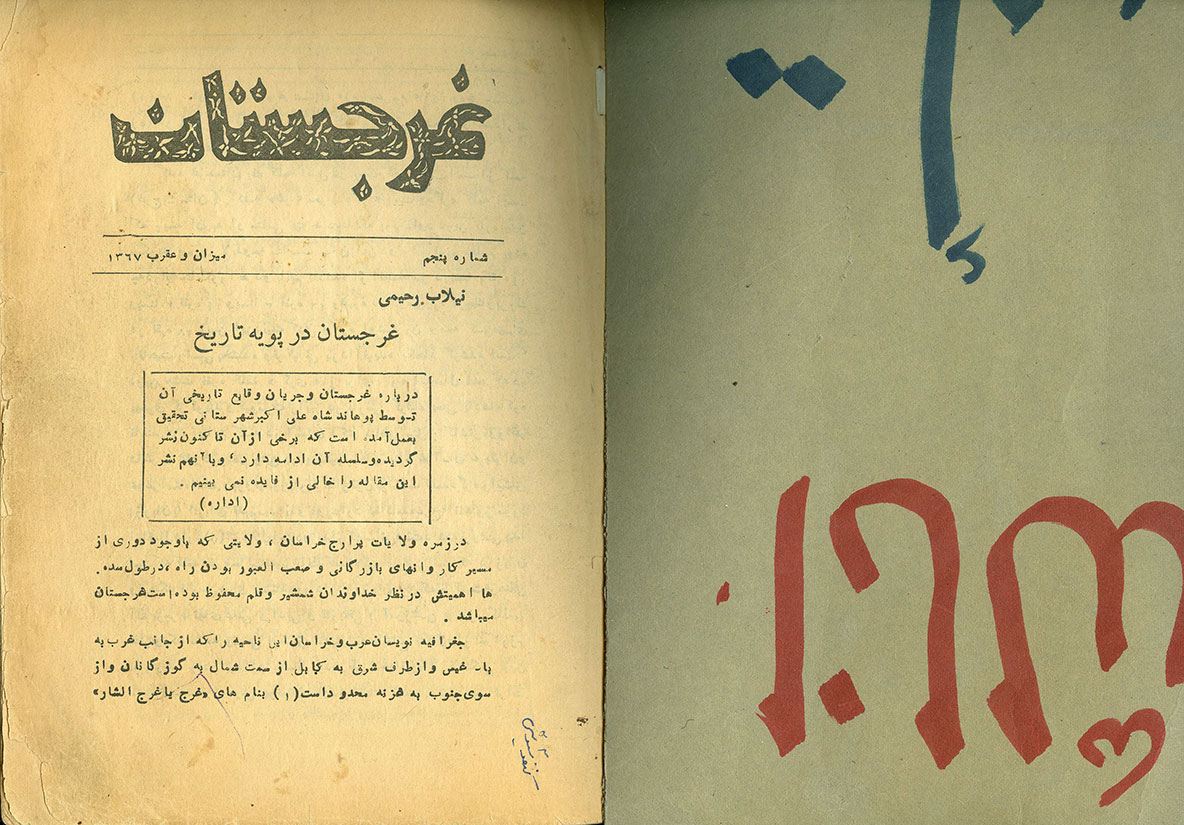 غرجستان
شماره پنجم میزان و عقرب ۱۳۶۷
نیلاب رحیمی
غرجستان در پویه تاریخ
درباره غرجستان وجریان وقایع تاریخی آن
توسط پوهاند شاه علی اکبر شهرستانی تحقیق
بعمل آمده است که برخی از آن تاکنون نشر
گردیده وسلسله آن ادامه دارد ، وبا آنهم نشر
این مقاله را خالی از فایده نمی بینیم .
(اداره)
درزمره ولایات پرارج خراسان ، ولایتی که باوجود دوری از
مسیر کاروانهای بازرگانی و صعب العبور بودن راه ،درطول سده
ها اهمیتش درنظر خداوندان شمشیر وقلم محفوظ بوده است غرجستان
میباشد .
جغرافیه نویسان عرب وخراسان این ناحیه راکه از جانب غرب به
باد غیس وازطرف شرق به کابل از سمت شمال به گوزگانان واز
سوی جنوب به غزنه محدود است(۱) بنام های «غرج یا غرج الشار»